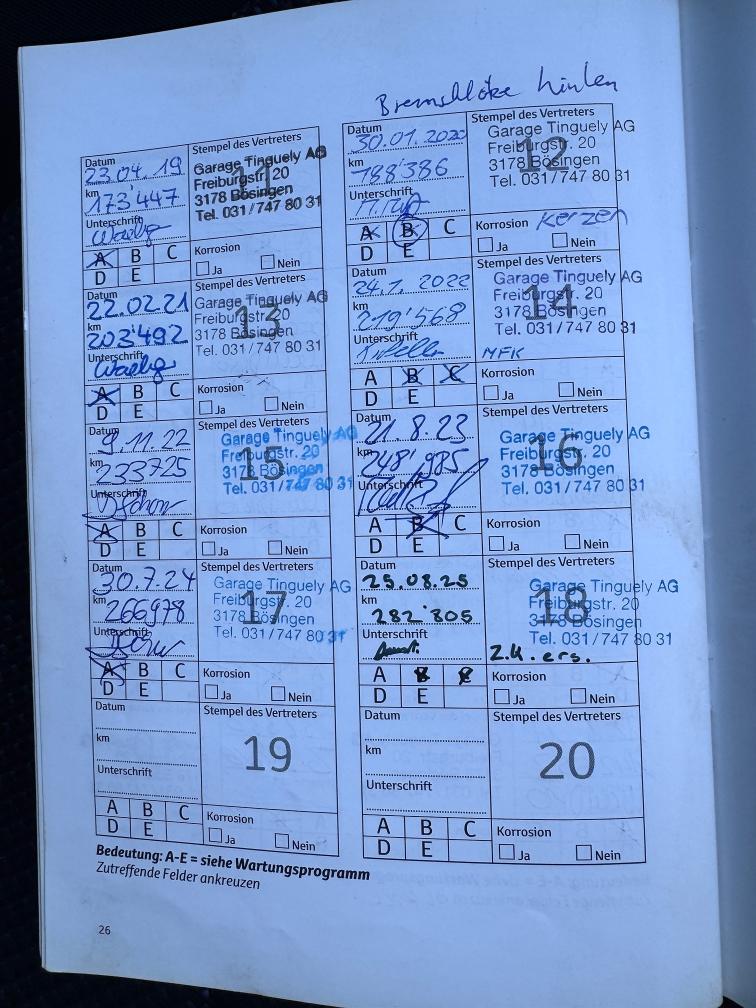 Bremsklötze hinten
Datum
23.04.19
km
173'447
Unterschrift
Stempel des Vertreters
11
Garage Tinguely AG
Freiburgstr. 20
3178 Bösingen
Tel. 031/747 80 31
A B C
D E
Korrosion
Ja Nein
Datum
30.01.2020
km
188'386
Unterschrift
Stempel des Vertreters
12
Garage Tinguely AG
Freiburgstr. 20
3178 Bösingen
Tel. 031/747 80 31
A B C
D E
Korrosion Kerzen
Ja Nein
Datum
22.02.21
km
203'492
Unterschrift
Stempel des Vertreters
13
Garage Tinguely AG
Freiburgstr. 20
3178 Bösingen
Tel. 031/747 80 31
A B C
D E
Korrosion
Ja Nein
Datum
24.1.2022
km
219'568
Unterschrift
Stempel des Vertreters
14
Garage Tinguely AG
Freiburgstr. 20
3178 Bösingen
Tel. 031/747 80 31
MFK
A B C
D E
Korrosion
Ja Nein
Datum
9.11.22
km
233725
Unterschrift
Stempel des Vertreters
15
Garage Tinguely AG
Freiburgstr. 20
3178 Bösingen
Tel. 031/747 80 31
A B C
D E
Korrosion
Ja Nein
Datum
21.8.23
km
248'985
Unterschrift
Stempel des Vertreters
16
Garage Tinguely AG
Freiburgstr. 20
3178 Bösingen
Tel. 031/747 80 31
A B C
D E
Korrosion
Ja Nein
Datum
30.7.24
km
266978
Unterschrift
Stempel des Vertreters
17
Garage Tinguely AG
Freiburgstr. 20
3178 Bösingen
Tel. 031/747 80 31
A B C
D E
Korrosion
Ja Nein
Datum
25.08.25
km
282'805
Unterschrift
Stempel des Vertreters
18
Garage Tinguely AG
Freiburgstr. 20
3178 Bösingen
Tel. 031/747 80 31
Z.K. ers.
A B C
D E
Korrosion
Ja Nein
Datum
km
Unterschrift
Stempel des Vertreters
19
A B C
D E
Korrosion
Ja Nein
Datum
km
Unterschrift
Stempel des Vertreters
20
A B C
D E
Korrosion
Ja Nein
Bedeutung: A-E = siehe Wartungsprogramm
Zutreffende Felder ankreuzen
26